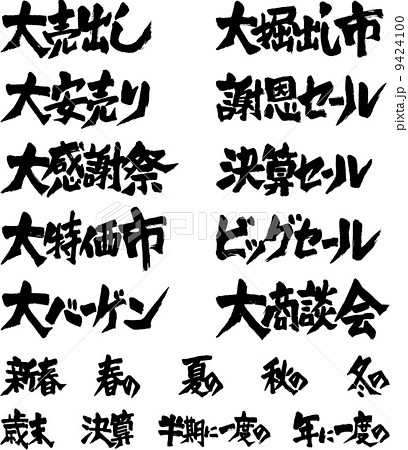 大売出し
大掘出し市
大安売り
謝恩セール
大感謝祭
決算セール
大特価市
ビッグセール
大バーゲン
大商談会
新春 春の 夏の 秋の 冬の
歳末 決算 半期に一度の 年に一度の
PIXTA
pixta.jp - 9424100